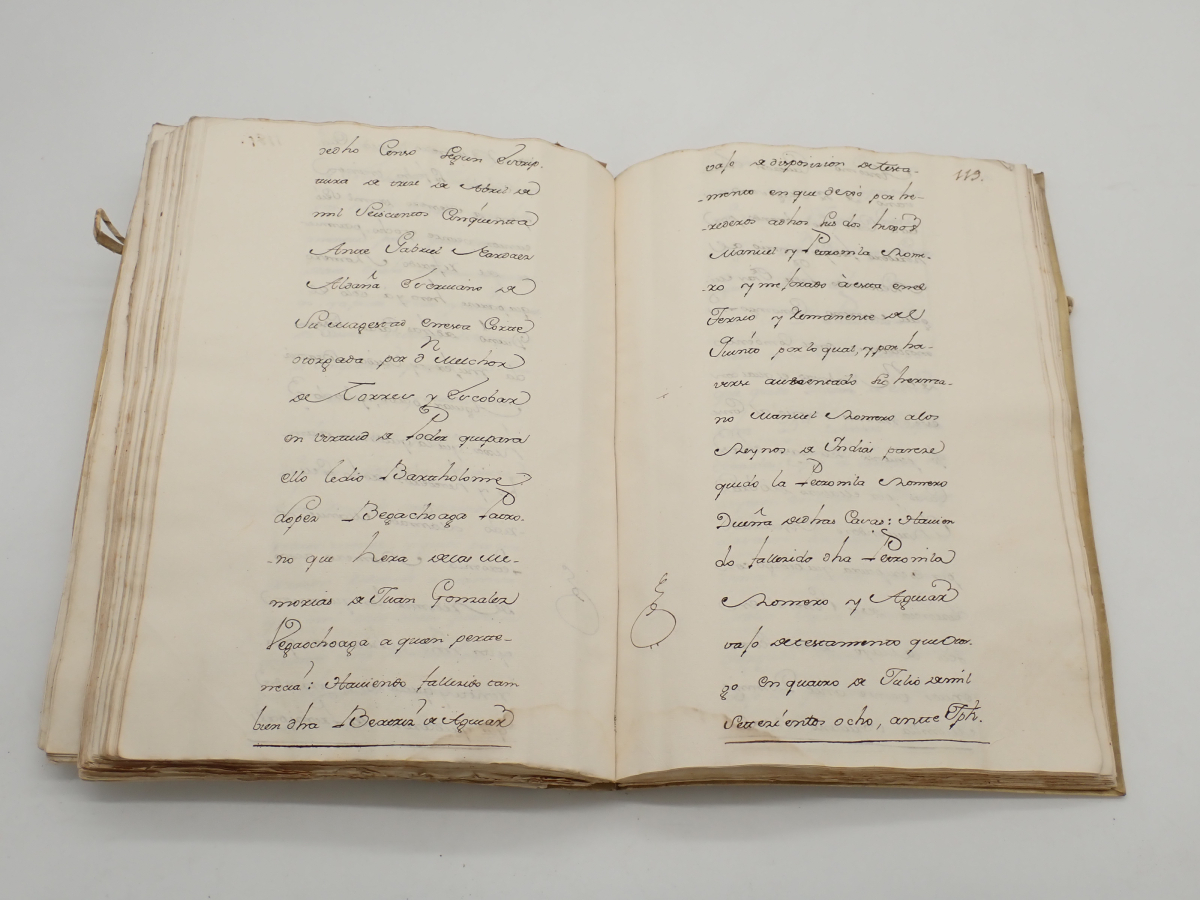 dedho Censo segun Escrip-
tura de treze de Abril de
mil Seiscientos Cinquentta
Antte Gabriel Narvaez
Aldaña Escrivano de
Su Magestad en esta Corte
ottorgada por Dn Melchor
de Torres y Escobar
en virtud de Poder que para
ello le dio Bartholome
Lopez Begachoaga Patro-
-no que hera de las Me-
morias de Juan Gonzalez
Vegaochoaga a quien pertte-
necia: Haviendo fallezido tam
bien dha Beatriz de Aguiar
119.
vajo de disposizion de testa-
-mento en que devó por he-
-rederos a dhos sus dos hijos
Manuel y Petronila Rome-
ro y mejorado à esta en el
Terzio y Remanente del
Quinto por lo qual, y por ha-
verse ausentado su herma-
no Manuel Romero a los
Reynos de Indias pareze
quedó la Petronila Romero
Dueña de dhas Casas: Havien
do fallezido dha Petronila
Romero y Aguiar
vajo de testamento que Otor-
gó en quatro de Julio de mil
Settezientos ocho, antte Jph.